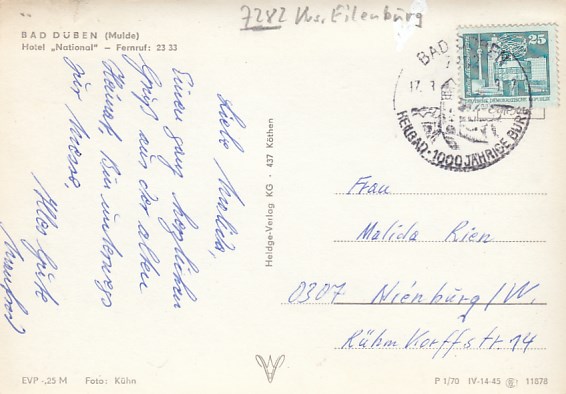 7282 Krs. Eilenburg
BAD DÜBEN (Mulde)
Hotel „National“ – Fernruf: 23 33
Liebe Malida,
Einen ganz herzlichen
Gruß aus der alten
Heimat. Bin unterwegs
zur Messe,
Alles Gute
Manfred
Heldge-Verlag KG · 437 Köthen
BAD DÜBEN
17.
HEILBAD · 1000 JÄHRIGE BURG
25
Frau
Malida Rien
0307 Nienburg/W.
Rühmkorffstr. 14
EVP -,25 M Foto: Kühn
P 1/70 IV-14-45 11878